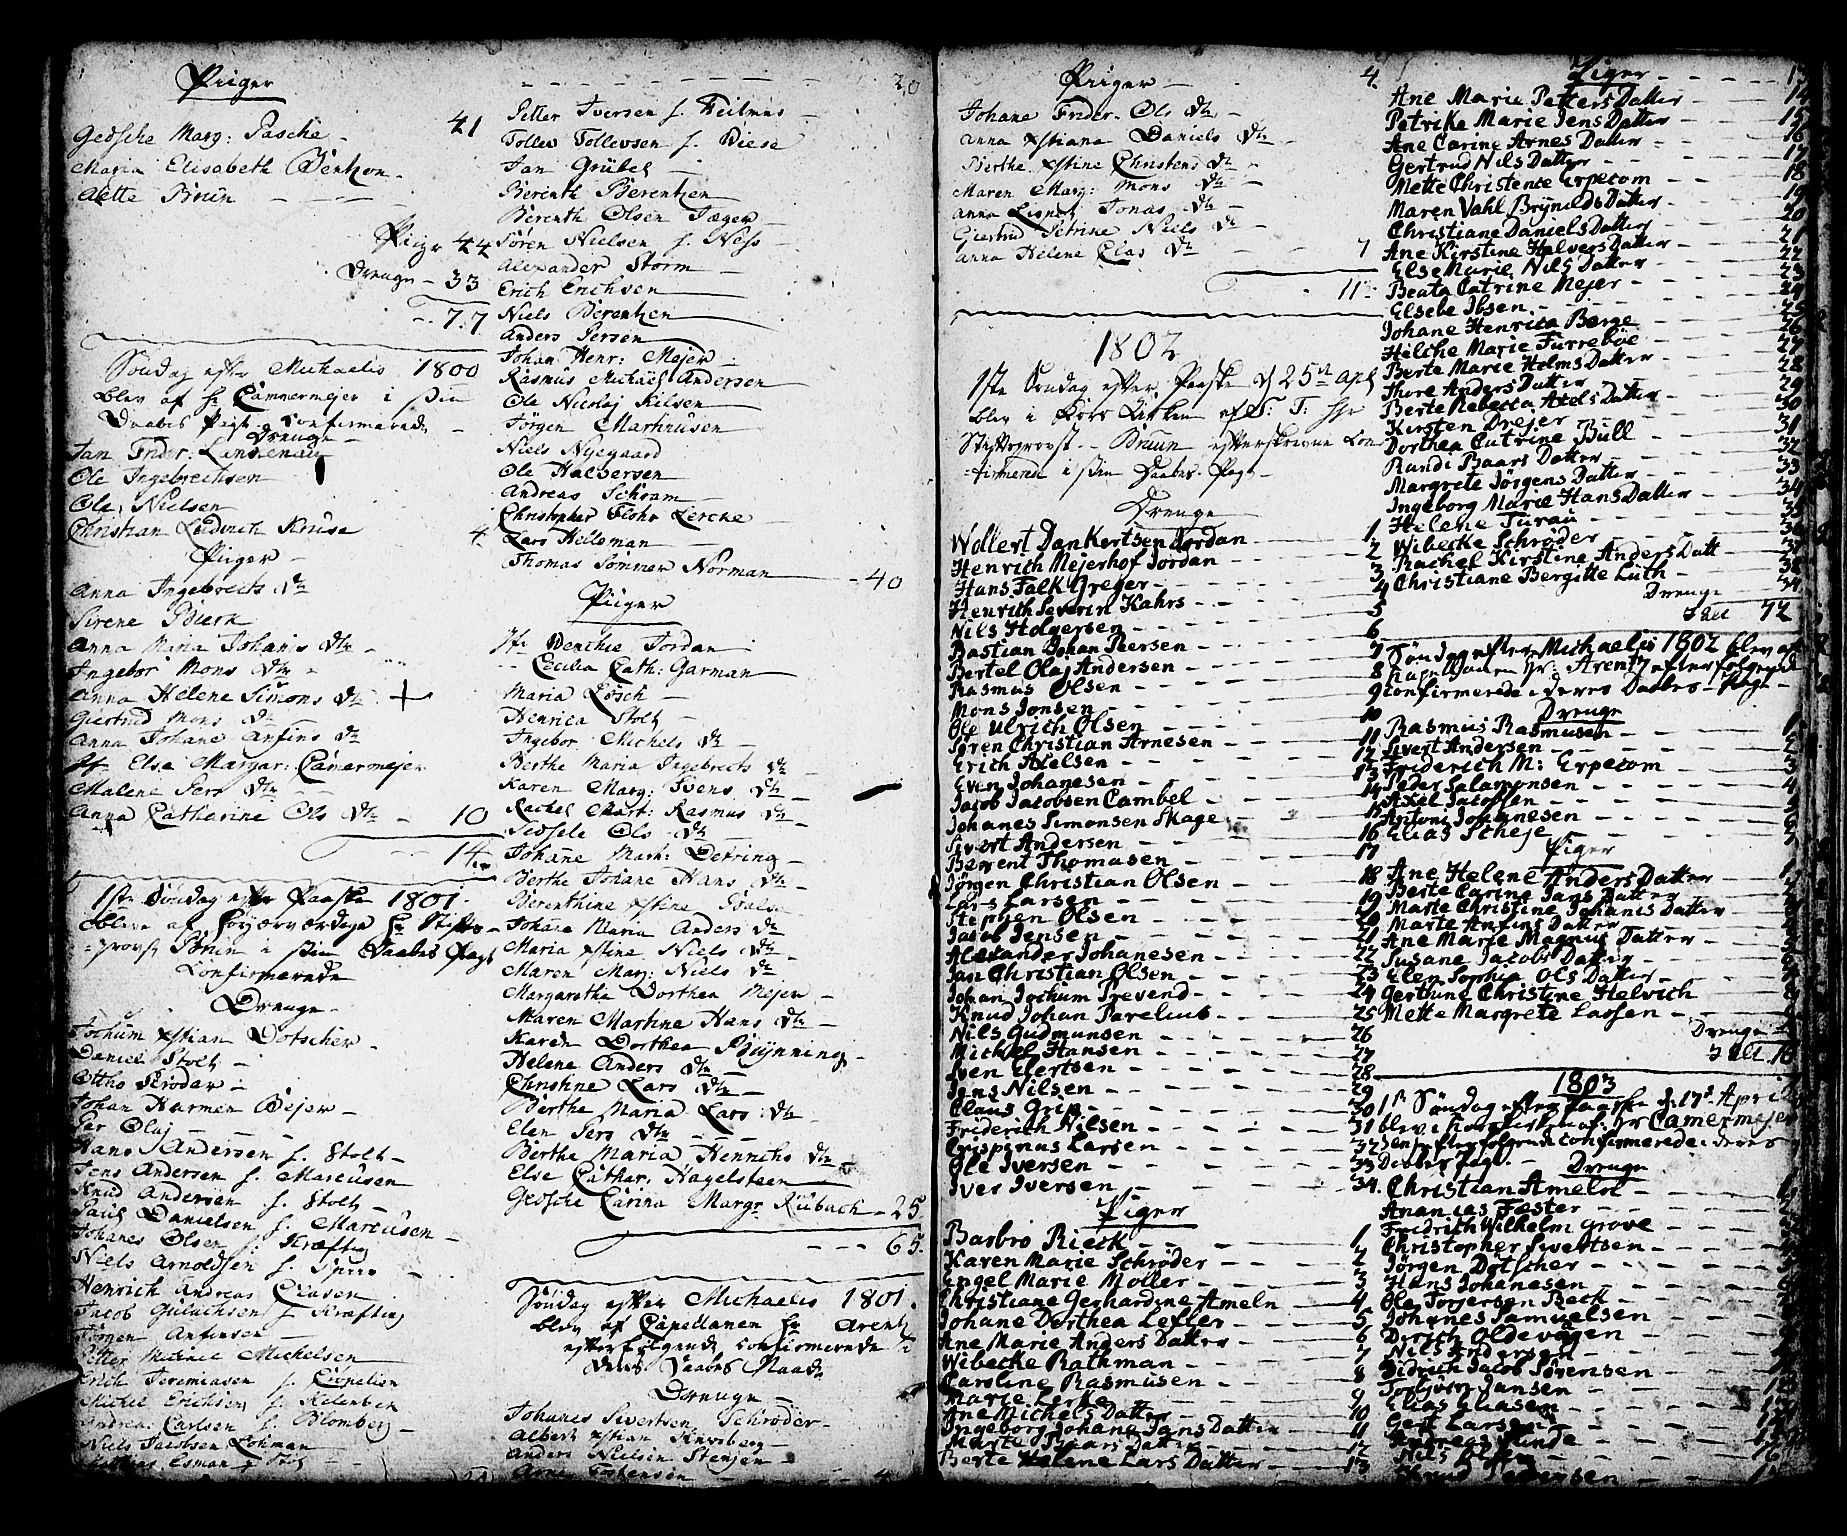 Piiger
Gedsche Marg: Pasche - 41
Maria Elisabeth Bentzon -
Aette Bruun
Piigr 44
Drenge - 33
77
Søndag efter Michaelis 1800
blev af Hr Cammermejer i sin
Daabes Pagt confirmerede
Drenge
Jan Frider:
Ole Ingebrechtsen
Ole Nielsen
Christian Ledewich Kruse 4
Piiger
Anna Ingebrects Dtr
Sirene Bierk
Anna Maria Johanis Dtr
Ingebor Mons Dtr
Anna Helene Simons Dtr +
Giertrud Mons Dtr
Anna Johane Anfins Dtr
Jfr Else Margar: Camermejer
Malene Pers Dtr
Anna Catharine Ols Dtr - 10
14
1ste Søndag efter Paaske 1801
bleve af Høyærværdige Hr Stifts-
provst Bruun i sin Daabes Pagt
Confirmerede
Drenge
Jochum xstian Dotscher
Daniel Stolt
Ottho Skrøder
Johan Harmen Bejer
Per Olaj
Hans Andersen f. Stolt
Jens Andersen f. Marcusen
Knud Andersen f. Stolt
Paul Danielsen f. Marcusen
Johanes Olsen f. Kræfting
Niels Arnoldsen f.
Henrich Andreas Clasen
Jacob Gulachsen f. Kræfting
Jørgen Anfinsen
Petter Michael Michelsen
Erich Jeremiasen f.
Michel Erichsen f.
Andreas Carlsen f. Blomberg
Niels Jacobsen Lohman
20
Petter Iversen f.
Tollev Tollevsen f. Wiese
Jan Grübel
Berenth Berentzen
Berenth Olsen Jæger
Søren Nielsen f. Ness
Alexander Storm
Erich Erichsen
Niels Berentzen
Anders Persen
Johan Henr: Mejer
Rasmus Michael Andersen
Ole Nicolaj Nilsen
Jørgen Marthnusen
Niels Nyegaard
Ole Halversen
Andreas Schram
Christopher Flohr Lercke
Lars Hillsman
Thomas Sommer Norman - 40
Piiger
Jfr Wenchie Jordan
Cecilia Cath: Garman
Maria Losch
Henrica Stolt
Ingebor Michels Dtr
Berthe Maria Ingebrects Dtr
Karen Marg: Svens Dtr
Rachel Mart: Rasmus Dtr
Sedsele Ols Dtr
Johane Mark: Detring
Berthe Johane Hans Dtr
Berenthine xstine
Johane Maria Anders Dtr
Maria xstine Niels Dtr
Maren Marg: Niels Dtr
Margaretha Dorthea Mejer
Maren Martine Hans Dtr
Karen Dorthea Brynning
Helene Anders Dtr
Christine Lars Dtr
Berthe Maria Lars Dtr
Elen Pers Dtr
Berthe Maria Henrichs Dtr
Else Cathar: Hagelsteen
Gedsche Carina Margr Rübach - 25
65
Søndag efter Michaelis 1801
blev af Capellanen Hr Arentz
efterfølgende confirmerede i
Deres Daabes Naade
Drenge
Johanes Sivertsen Schrøder
Albert xstian
Anders Nielsen Stenjen
Arne Tostensen 4
Piiger 4.
Johane Frider. Ols Dtr
Anna xstiana Daniels Dtr
Berthe xstine Christens Dtr
Maren Marg: Mons Dtr
Anna Lisbet Jonas Dtr
Giertrud Petrine Niels Dtr
Anna Helene Clas Dtr 7
11
1802
1ste Søndag efter Paaske d 25de Apl
blev i Kors Kirken af S: T: Hr
Stiftsprovst Bruun efterskrevne Con-
firmered i sin Daabes Pagt
Drenge
Wollert DanKertsen Jordan 1
Henrich Mejerhof Jordan 2
Hans Falk Greger 3
Henrich Severin Kahrs 4
Nils Holgersen 5
Bastian Johan Ibersen 6
Bertel Olaj Andersen 7
Rasmus Olsen 8
Mons Jonsen 9
Ole Ulrich Olsen 10
Søren Christian Arnesen 11
Erich Axelsen 12
Even Johanesen 13
Jacob Jacobsen Cambel 14
Johanes Simonsen Skage 15
Sivert Andersen 16
Berent Thomasen 17
Jørgen Christian Olsen 18
Lars Larsen 19
Stephen Olsen 20
Jacob Jensen 21
Alexander Johanesen 22
Jan Christian Olsen 23
Johan Jochum Prevend 24
Knud Johan Parelius 25
Nils Gudmunsen 26
Michel Hansen 27
Iven Gertsen 28
Jens Nilsen 29
Claus Grip 30
Friderich Nilsen 31
Crispinus Larsen 32
Ole Iversen 33
Iver Iversen 34.
Piger
Barbro Rieck 1
Karen Marie Schrøder 2
Engel Marie Moller 3
Christiane Gerhardine Ameln 4
Johane Dorthea Lexler 5
Ane Marie Anders Datter 6
Wibecke Rathman 7
Caroline Rasmusen 8
Marie Lerke 9
Ane Michels Datter 10
Ingeborg Johane Jans Datter 11
Marte Baars Datter 12
Berte Helene Lars Datter 13
Piger 13
Ane Marie Petters Datter 14
Petrike Marie Jens Datter 15
Ane Carine Arnes Datter 16
Gertrud Nils Datter 17
Mette Christence Erpecom 18
Maren Vahl Brynilds Datter 19
Christiane Daniels Datter 20
Ane Kirstine Helvers Datter 21
Else Marie Nils Datter 22
Beata Catrine Mejer 23
Elsebe Ibsen 24
Johane Henrica Berge 25
Hilche Marie Furreboe 26
Berte Marie Holms Datter 27
Thore Anders Datter 28
Berte Rebecca Axels Datter 29
Kirsten Drejer 30
Dorthea Catrine Bull 31
Randi Baars Datter 32
Margrete Jørgens Datter 33
Ingeborg Marie Hans Datter 34
Helene Turau 35
Wibecke Schrøder 36
Rachel Kirstine Anders Datt 37
Christiane Bergitte Lüth 38
Drenge 34
I alt 72
Søndag efter Michaelis 1802 blev af
Capellanen Hr. Arentz efterfølgende
confirmerede i deres Daabes-Pagt
Drenge
Rasmus Rasmusen 1
Sivert Andersen 2
Friderich M: Erpecom 3
Peder Salamonsen 4
Axel Jacobsen 5
Antoni Johannesen 6
Elias Scheje 7
Piger
Ane Helene Anders Datter 1
Berte Carina Jans Datter 2
Marte Christine Johanis Datter
Marte Anfins Datter
Ane Marie Magnus Datter
Susane Jacobs Datter
Elen Sophia Ols Datter
Gerthune Christine Helvich 8
Mette Margrete Larsen
Drenge
I alt 16
1803
1ste Søndag efter Paaske d. 17de April
blev i Korskirken af Hr Camermejer
sen: efterfølgende confirmerede i deres
Daabes Pagt.
Drenge
Christian Ameln 1
Ananias Fæster
Fridrich Wilhelm Grove
Christopher Sivertsen
Jørgen Dotscher
Hans Johanesen
Ole Torgersen Beck
Johanes Samuelsen
Dirich Oldevagen
Nils Andersen
Didrich Jacob Sørensen
Torbjørn Jansen
Elias Eliasen
Gert Larsen
Nils